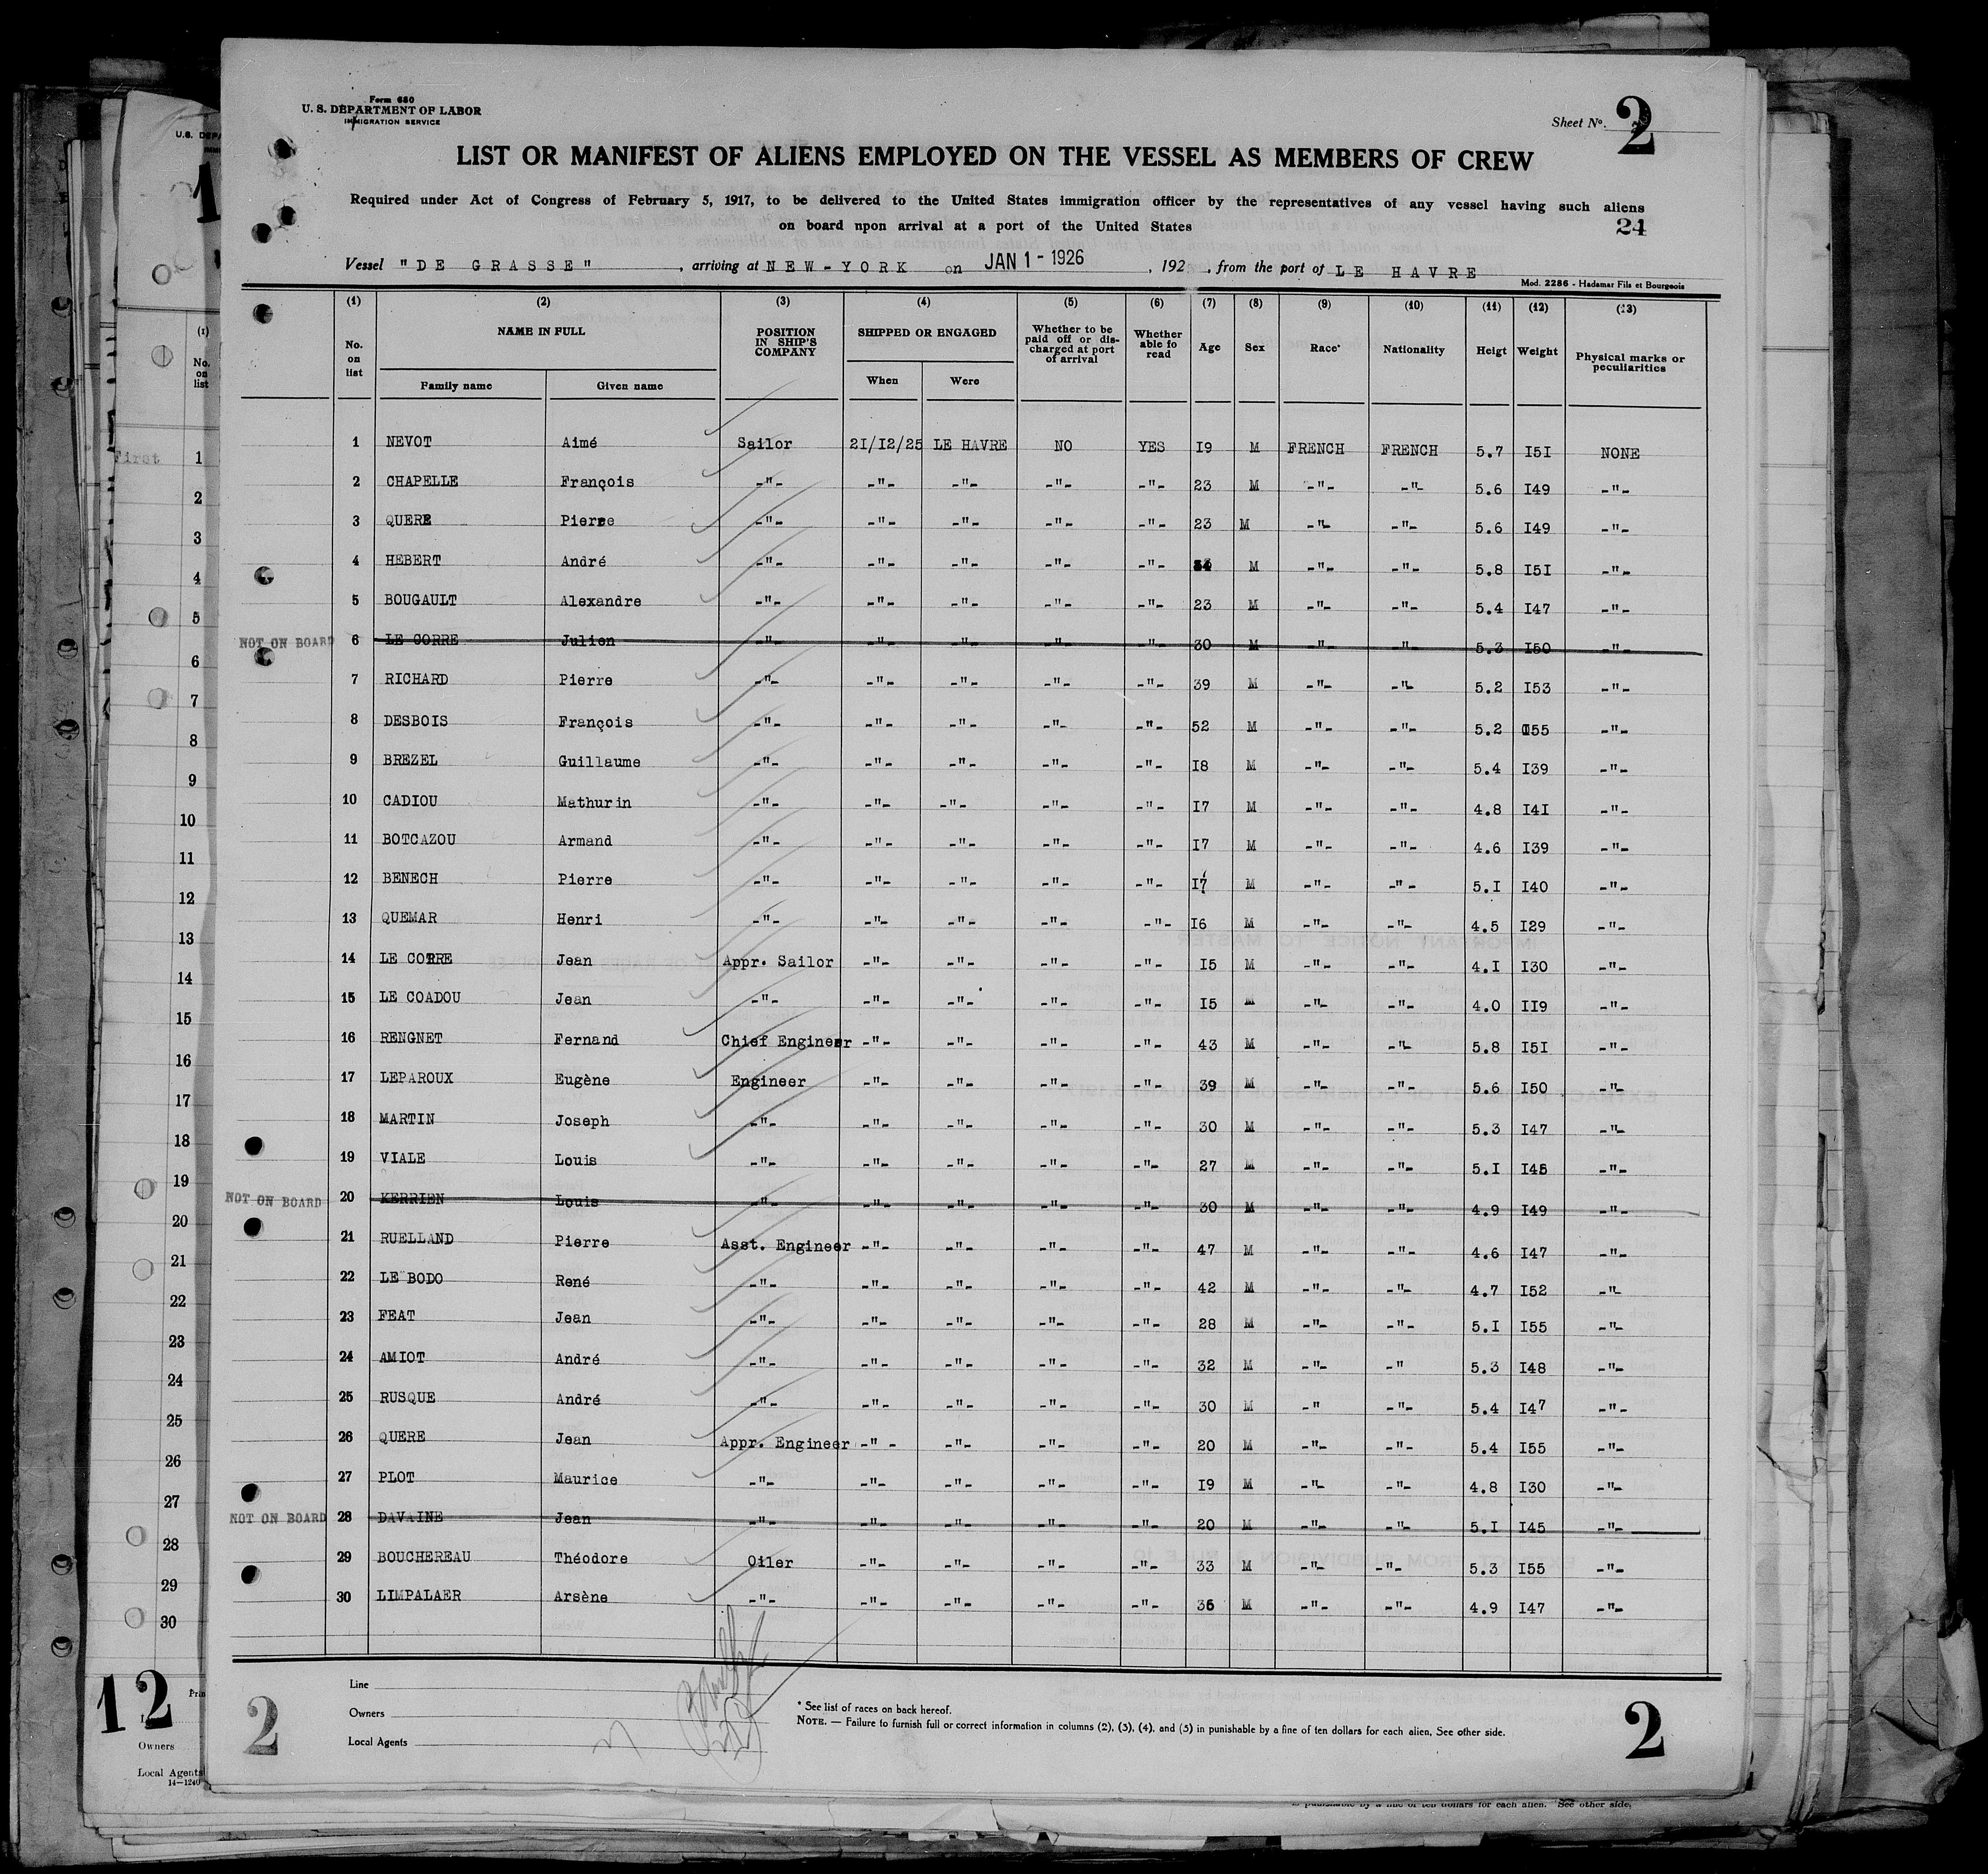 Form 680
U. S. DEPARTMENT OF LABOR
IMMIGRATION SERVICE
Sheet No. 2
LIST OR MANIFEST OF ALIENS EMPLOYED ON THE VESSEL AS MEMBERS OF CREW
Required under Act of Congress of February 5, 1917, to be delivered to the United States immigration officer by the representatives of any vessel having such aliens
on board npon arrival at a port of the United States
24
Vessel "DE GRASSE", arriving at NEW-YORK on JAN 1 - 1926, 192 , from the port of LE HAVRE
Mod. 2286 - Hadamar Fils et Bourgeois
(1) (2) (3) (4) (5) (6) (7) (8) (9) (10) (11) (12) (13)
No. on list NAME IN FULL POSITION IN SHIP'S COMPANY SHIPPED OR ENGAGED Whether to be paid off or discharged at port of arrival Whether able fo read Age Sex Race* Nationality Heigt Weight Physical marks or peculiarities
Family name Given name When Were
1 NEVOT Aimé Sailor 2I/I2/25 LE HAVRE NO YES I9 M FRENCH FRENCH 5.7 I5I NONE
2 CHAPELLE François -"- -"- -"- -"- -"- 23 M -"- -"- 5.6 I49 -"-
3 QUERE Pierre -"- -"- -"- -"- -"- 23 M -"- -"- 5.6 I49 -"-
4 HEBERT André -"- -"- -"- -"- -"- M -"- -"- 5.8 I5I -"-
5 BOUGAULT Alexandre -"- -"- -"- -"- -"- 23 M -"- -"- 5.4 I47 -"-
NOT ON BOARD 6 LE CORRE Julien -"- -"- -"- -"- -"- 30 M -"- -"- 5.3 I50 -"-
7 RICHARD Pierre -"- -"- -"- -"- -"- 39 M -"- -"- 5.2 I53 -"-
8 DESBOIS François -"- -"- -"- -"- -"- 52 M -"- -"- 5.2 I55 -"-
9 BREZEL Guillaume -"- -"- -"- -"- -"- I8 M -"- -"- 5.4 I39 -"-
10 CADIOU Mathurin -"- -"- -"- -"- -"- I7 M -"- -"- 4.8 I4I -"-
11 BOTCAZOU Armand -"- -"- -"- -"- -"- I7 M -"- -"- 4.6 I39 -"-
12 BENECH Pierre -"- -"- -"- -"- -"- I7 M -"- -"- 5.I I40 -"-
13 QUEMAR Henri -"- -"- -"- -"- -"- I6 M -"- -"- 4.5 I29 -"-
14 LE CORRE Jean Appr. Sailor -"- -"- -"- -"- I5 M -"- -"- 4.I I30 -"-
15 LE COADOU Jean -"- -"- -"- -"- -"- I5 M -"- -"- 4.0 II9 -"-
16 RENGNET Fernand Chief Engineer -"- -"- -"- -"- 43 M -"- -"- 5.8 I5I -"-
17 LEPAROUX Eugène Engineer -"- -"- -"- -"- 39 M -"- -"- 5.6 I50 -"-
18 MARTIN Joseph -"- -"- -"- -"- -"- 30 M -"- -"- 5.3 I47 -"-
19 VIALE Louis -"- -"- -"- -"- -"- 27 M -"- -"- 5.I I45 -"-
NOT ON BOARD 20 KERRIEN Louis -"- -"- -"- -"- -"- 30 M -"- -"- 4.9 I49 -"-
21 RUELLAND Pierre Asst. Engineer -"- -"- -"- -"- 47 M -"- -"- 4.6 I47 -"-
22 LE BODO René -"- -"- -"- -"- -"- 42 M -"- -"- 4.7 I52 -"-
23 FEAT Jean -"- -"- -"- -"- -"- 28 M -"- -"- 5.I I55 -"-
24 AMIOT André -"- -"- -"- -"- -"- 32 M -"- -" 5.3 I48 -"-
25 RUSQUE André -"- -"- -"- -"- -"- 30 M -" -"- 5.4 I47 -"-
26 QUERE Jean Appr. Engineer -"- -"- -"- -"- 20 M -"- -"- 5.4 I55 -"-
27 PLOT Maurice -"- -"- -"- -"- -"- I9 M -"- -"- 4.8 I30 -"-
NOT ON BOARD 28 DAVAINE Jean -"- -"- -"- -"- -"- 20 M -"- -"- 5.I I45 -"-
29 BOUCHEREAU Théodore Oiler -"- -"- -"- -"- 33 M -"- -"- 5.3 I55 -"-
30 LIMPALAER Arsène -"- -"- -"- -"- -"- 36 M -"- -"- 4.9 I47 -"-
Line
Owners
Local Agents
* See list of races on back hereof.
NOTE. — Failure to furnish full or correct information in columns (2), (3), (4), and (5) in punishable by a fine of ten dollars for each alien, See other side.
2
2
U.S. DEPA
1
(1)
No. on list
First 1
2
3
4
5
6
7
8
9
10
11
12
13
14
15
16
17
18
19
20
21
22
23
24
25
26
27
28
29
30
12
Owners
Local Agents
14-1240
is punishable by a fine of ten dollars for each alien. See other side.